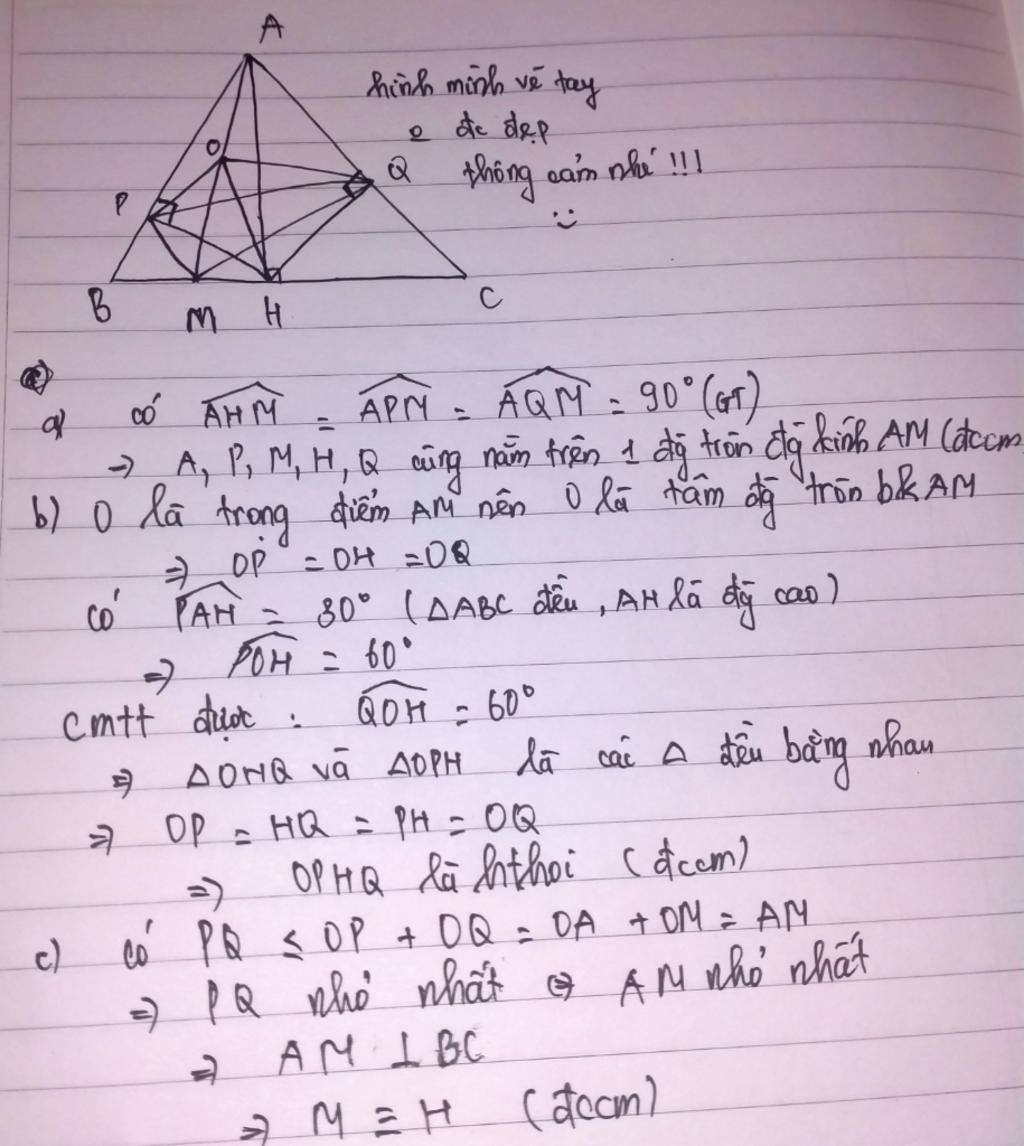 A
hình mình vẽ tay
o đc đẹp
thông cảm nhé !!!
O
Q
P
B
M
H
C
a) có AHM = APM = AQM = 90° (GT)
→ A, P, M, H, Q cùng nằm trên 1 đg tròn đg kính AM (đccm
b) O là trọng điểm AM nên O là tâm đg tròn bk AM
⇒ OP = OH = OQ
có PAH = 30° (ΔABC đều, AH là đg cao)
⇒ POH = 60°
Cmtt được : QOH = 60°
⇒ ΔOHQ và ΔOPH là các Δ đều bằng nhau
⇒ OP = HQ = PH = OQ
⇒ OPHQ là hthoi (đccm)
c) có PQ ≤ OP + OQ = OA + OM = AM
⇒ PQ nhỏ nhất ⇔ AM nhỏ nhất
⇒ AM ⊥ BC
⇒ M ≡ H (đccm)